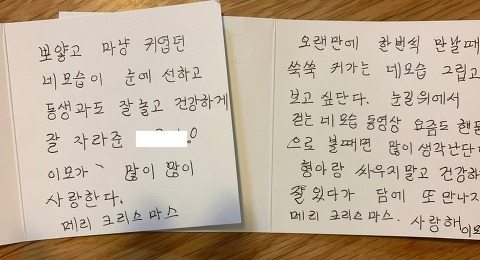 뽀얗고 마냥 귀엽던
네모습이 눈에 선하고
동생과도 잘놀고 건강하게
잘 자라준
이모가 많이 많이
사랑한다.
메리 크리스마스
오랜만에 한번씩 만날때
쑥쑥 커가는 네모습 그립고
보고 싶단다. 눈길위에서
걷는 네모습 동영상 요즘도 핸드
으로 볼때면 많이 생각난단다
형아랑 싸우지말고 건강하
잘 있다가 담에 또 만나지
메리 크리스마스. 사랑해 이모